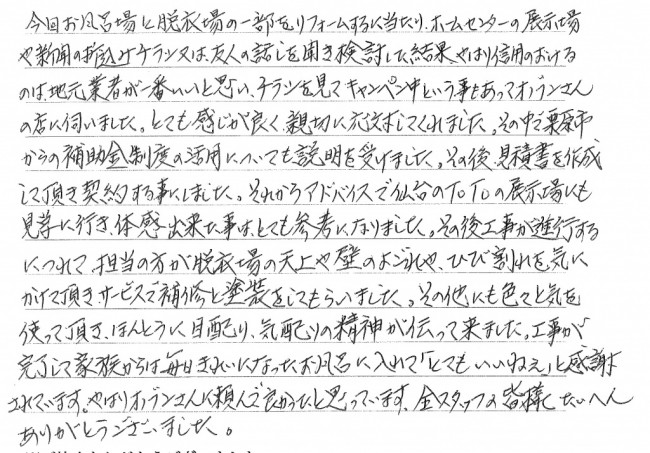 今回お風呂場と脱衣場の一部をリフォームするに当たり、ホームセンターの展示場
や新聞の折込みチラシ又は、友人の話しを聞き検討した結果、やはり信用のおける
のは、地元業者が一番いいと思い、チラシを見てキャンペン中という事もあってオノランさん
の店に伺いました。とても感じが良く、親切に応対してくれました。その中で栗原市
からの補助金制度の活用についても説明を受けました。その後、見積書を作成
して頂き契約する事にしました。それからアドバイスで仙台のTOTOの展示場にも
見学に行き、体感出来た事は、とても参考になりました。その後工事が進行する
につれて、担当の方が脱衣場の天上や壁のよごれや、ひび割れを気に
かけて頂き、サービスで補修と塗装をしてもらいました。その他にも色々と気を
使って頂き、ほんとうに目配り、気配りの精神が伝って来ました。工事が
完了して家族からは毎日きれいになったお風呂に入れて「とてもいいねぇ」と感謝
されています。やはりオノランさんに頼んで良かったと思っています。全スタッフの皆様、たいへん
ありがとうございました。